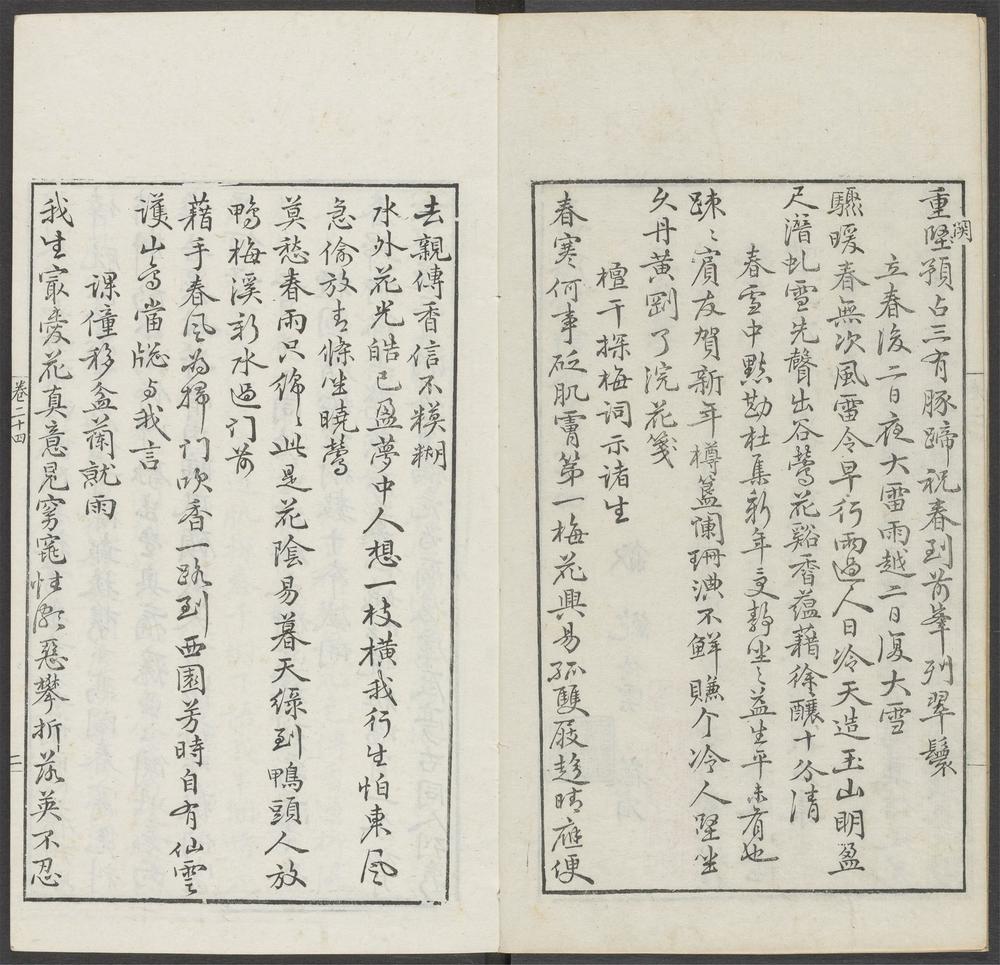 重堅預占三有豚蹄祝春到前峯列翠鬟
関
立春後二日夜大雷雨越二日復大雪
驟暖春無次風雷令早行雨過人日冷天造玉山明盈
尺潛虬雪先聲出谷鶯花谿香蘊藉徐釀十分清
春雪中點勘杜集新年受静坐之益生平未有也
踈〻賓友賀新年樽簋闌珊洩不鮮賺个冷人堅坐
久丹黃劄了浣花箋
檀干探梅詞示諸生
春寒何事砭肌膚第一梅花興易孤雙屐趁晴應便
去親傳香信不糢糊
水外花光皓已盈夢中人想一枝橫我行生怕東風
急偷放青條坐曉鶯
莫愁春雨只綿〻此是花陰易暮天綠到鴨頭人放
鴨梅溪新水過門前
藉手春風為掃門吹香一路到西園芳時自有仙雲
護山鳥當牕与我言
課僮移盆蘭就雨
我生寂愛花真意見窮窕性潔惡攀折落英不忍
卷二十四
二